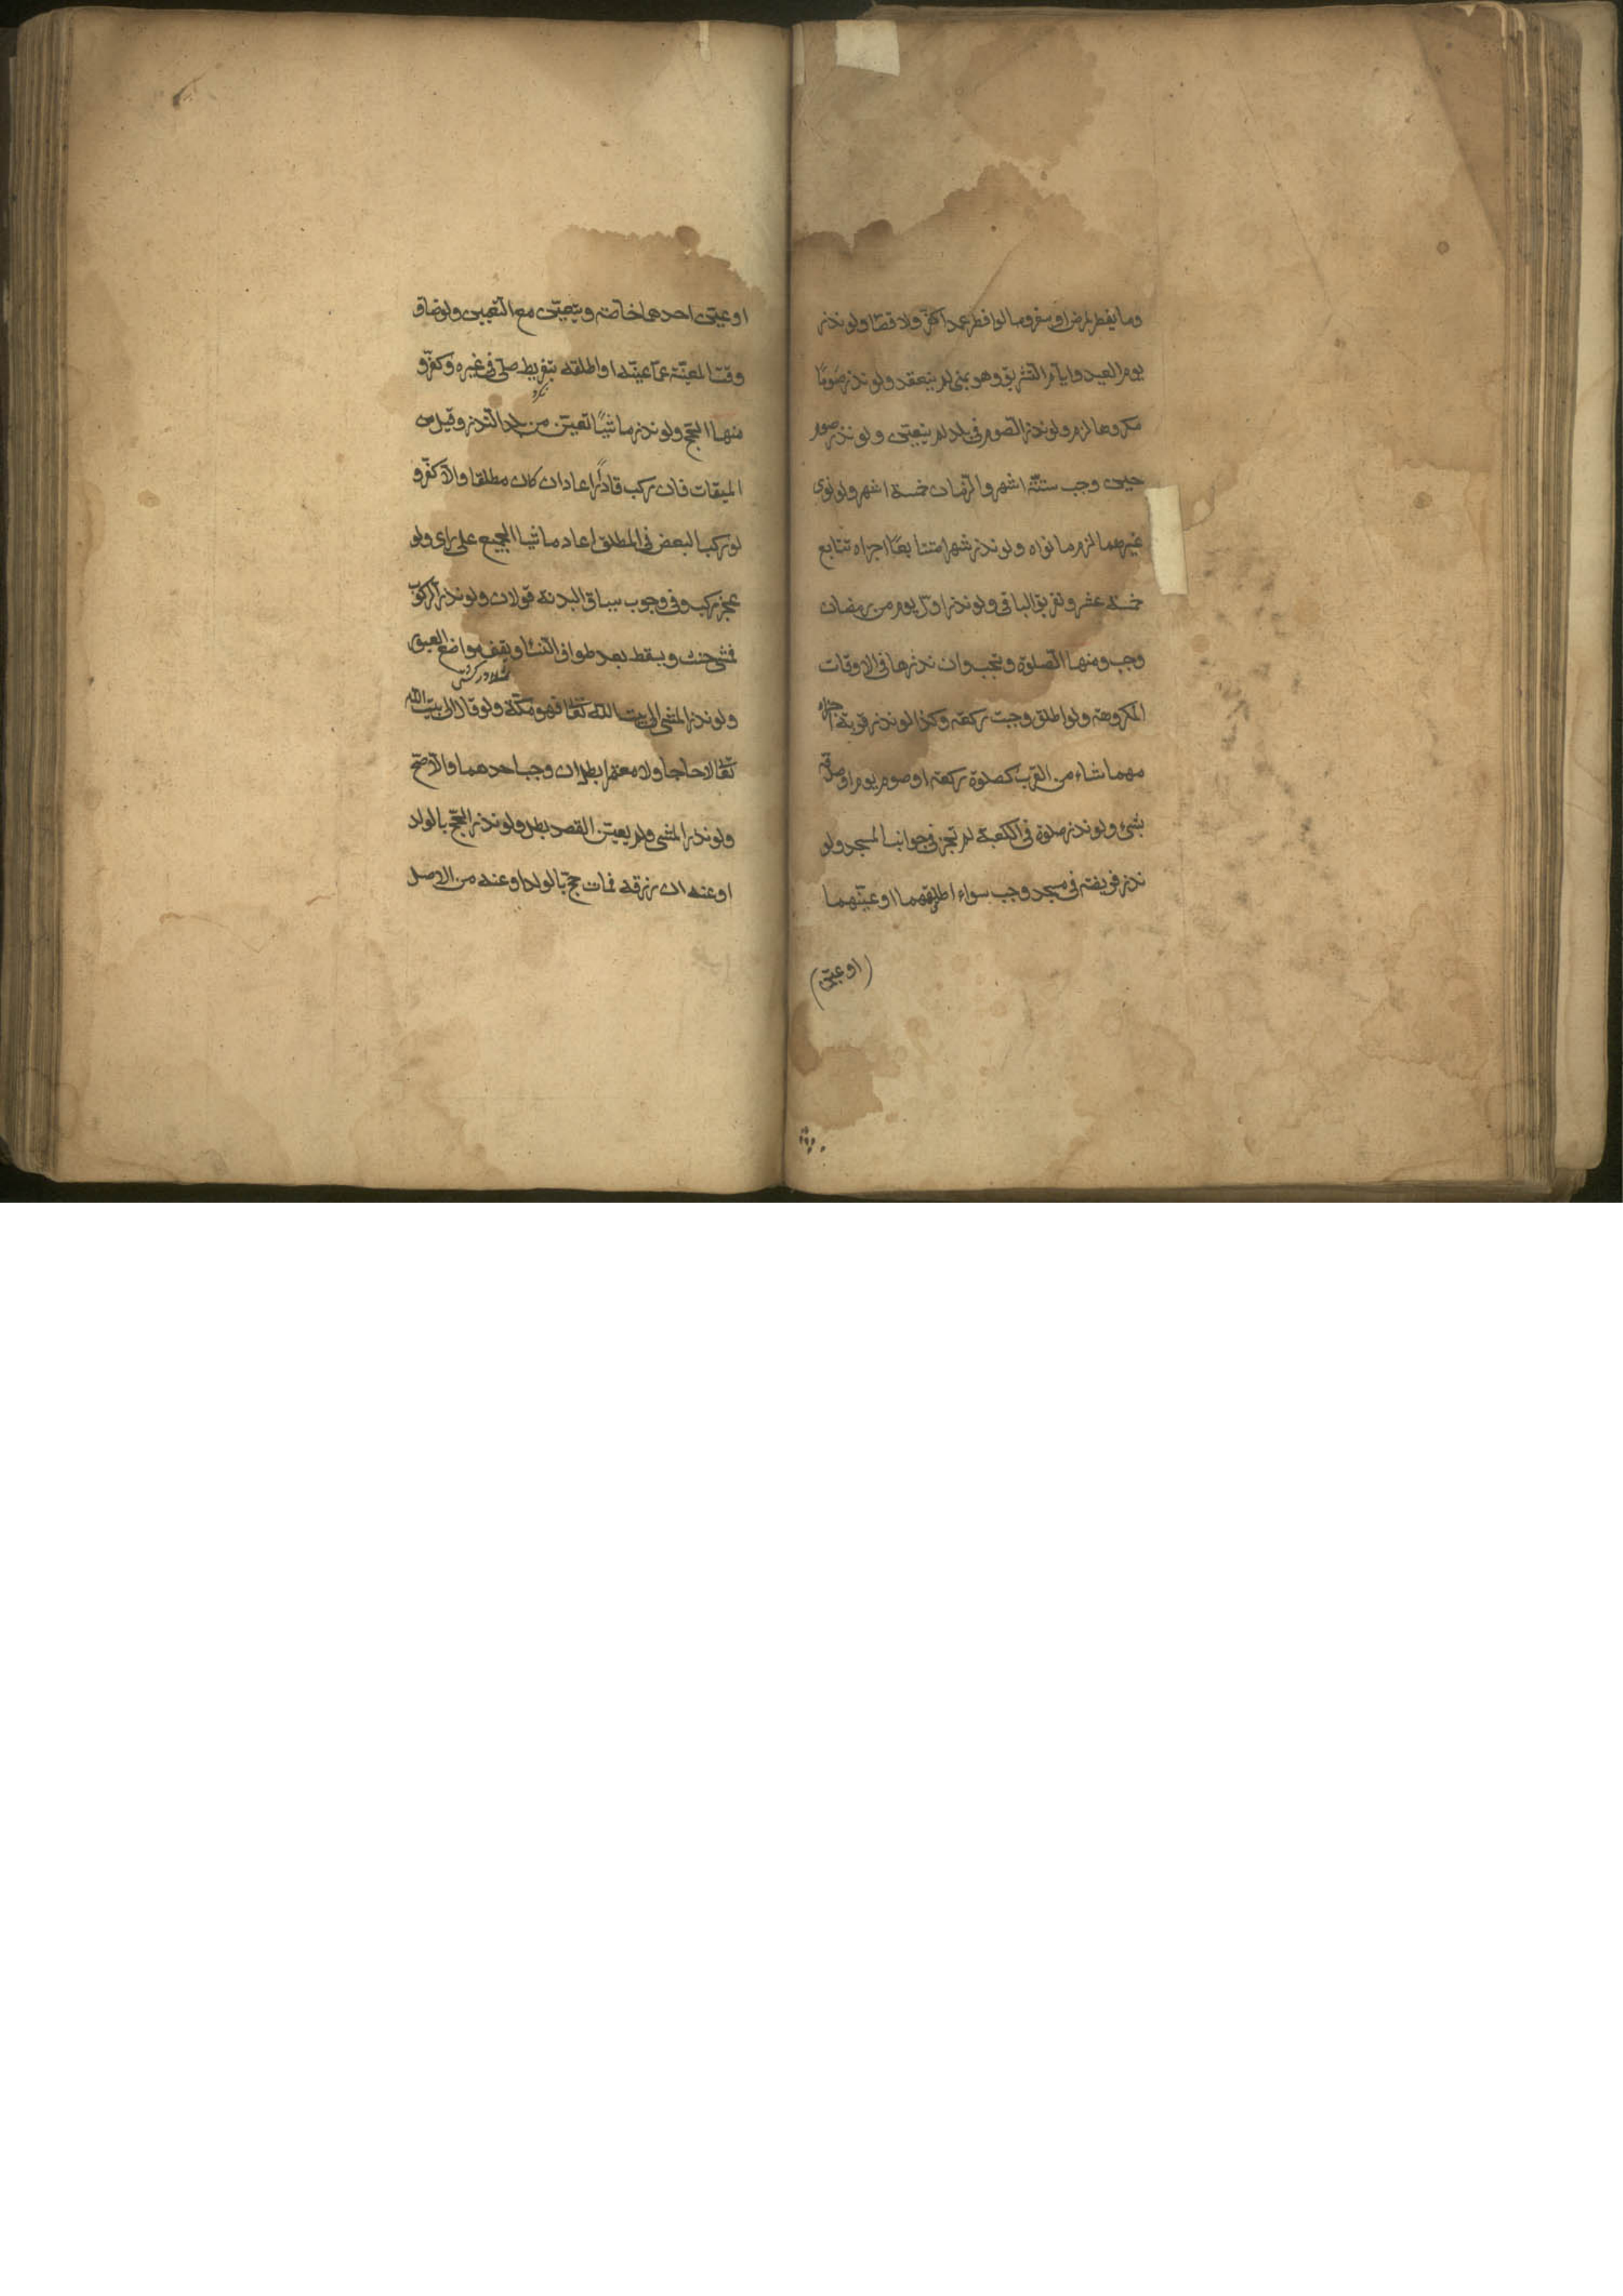 وما يفطر لمرض او سفر وما لو افطر عمدا كفّر ولا قضا ولو نذر
يوم العيد وايام التشريق وهو بمنى لم ينعقد ولو نذر صومًا
مكروها لزم ولو نذر الصوم في بلد لم يتعيّن ولو نذر صوم
حين وجب ستّة اشهر والزّمان خمسة اشهر ولو نوى
غيرهما لزم ما نواه ولو نذر شهرا متتابعًا اجزاه تتابع
خمسة عشر وتفريق الباقي ولو نذر اوّل يوم من رمضان
وجب ومنها الصلوة وتجب وان نذرها في الاوقات
المكروهة ولو اطلق وجبت ركعة وكذا لو نذر قربة اجزاه
مهما شاء من القرب كصلوة ركعة او صوم يوم او صدقة
بشئ ولو نذر صلوة في الكعبة لم تجز في جوانب المسجد ولو
نذر فريضة في مسجد وجب سواء اطلقهما او عيّنهما
(او عيّن)
او عيّن احدهما خاصّة ويتعيّن مع التعيين ولو ضاق
وقت المعيّنة عمّا عيّنه او اطلقه بتفريط صلّى في غيره وكفّر و
منها الحجّ ولو نذر ماشيًا تعيّن من بلد النّذر وقيل من
الميقات فان ركب قادرًا اعاد ان كان مطلقا والّا كفّر و
لو ركب البعض في المطلق اعاد ماشيا الجميع على راى ولو
عجز ركب وفي وجوب سياق البدنة قولان ولو نذر الركوب
فمشى حنث ويسقط بعد طواف النّسا ويقف مواضع العبور
ولو نذر المشى الى بيت الله تعا فهو مكّة ولو قال الى بيت الله
تعا لا حاجا ولا معتمرا بطل ان وجب احدهما والّا صحّ
ولو نذر المشى ولم يعيّن القصد بطل ولو نذر الحجّ بالولد
او عنه ان رزقه فمات حجّ بالولد او عنه من الاصل